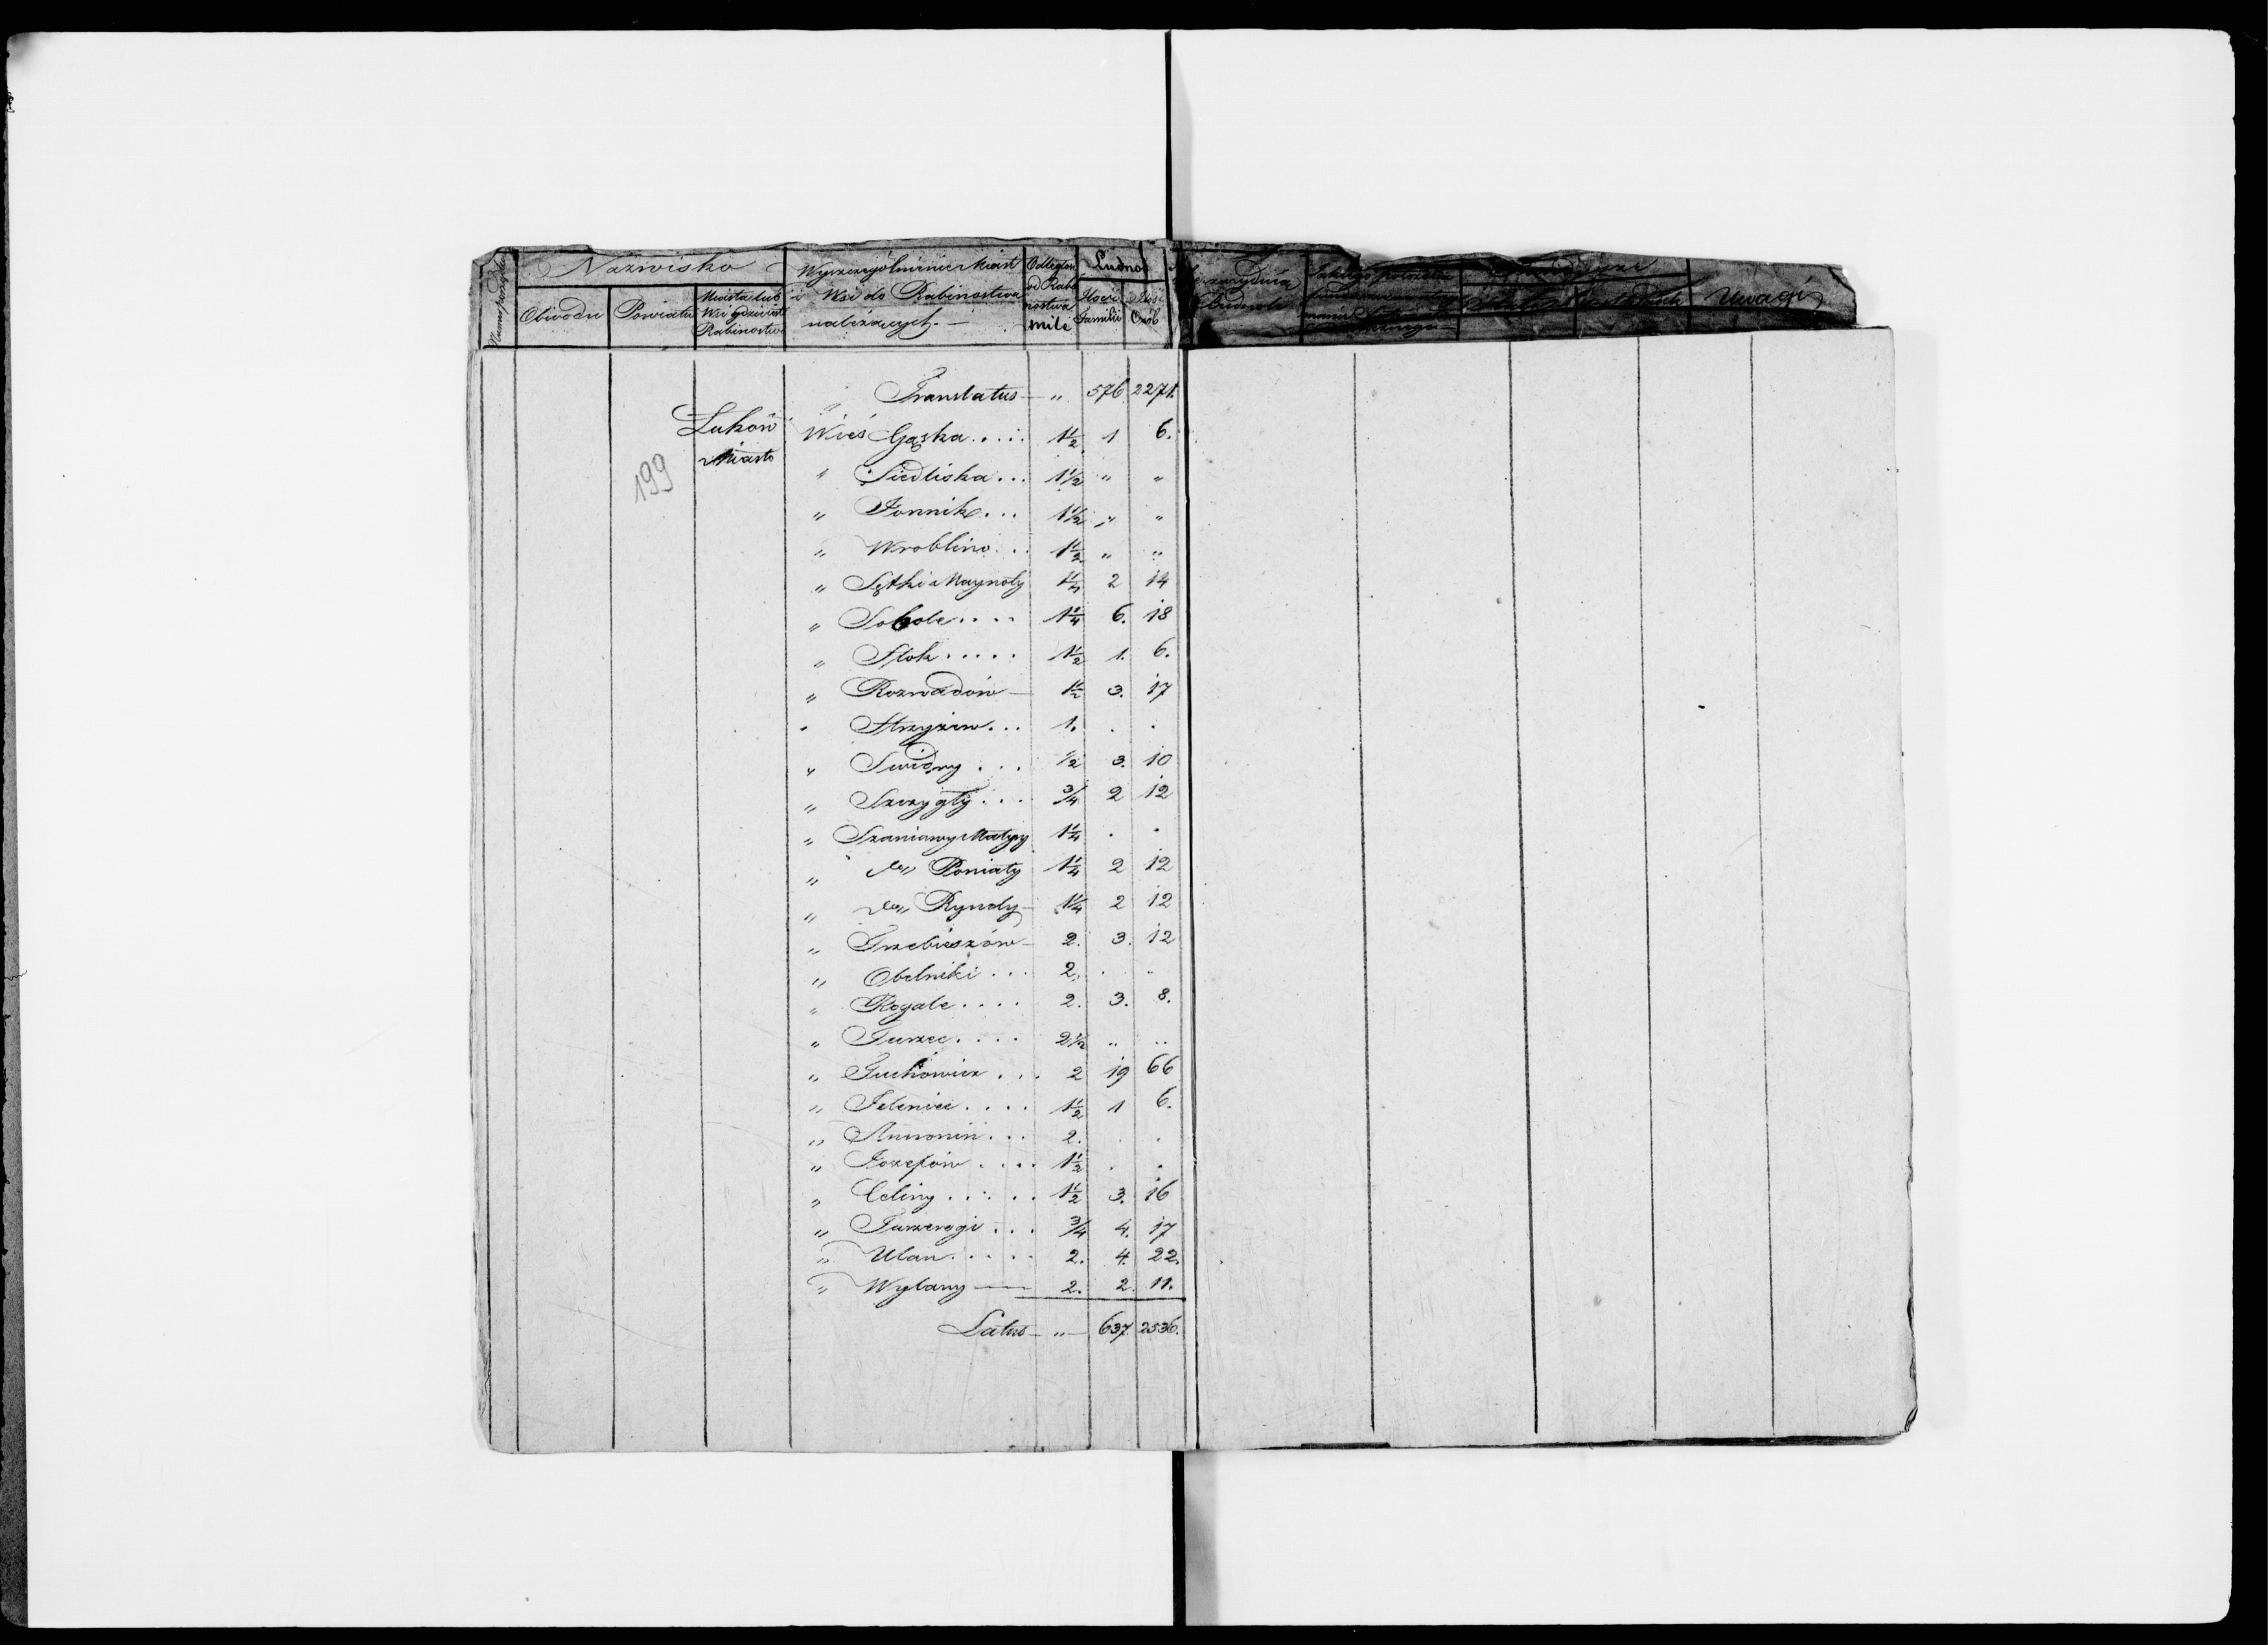 Nazwisko
Obwodu
Powiatu
Miasta lub Wsi gdzie jest Rabinostwo
Wyszczególnienie Miast i Wsi do Rabinostwa należących. —
Odległość od Rabinostwa mile
Ludność
Ilość Familii
Ilość Osób
Uwagi
Translatus — „ 576. 2271.
Łuków Wieś Gąska.... 1 1/2 1 6.
Miasto
199
„ Siedliska... 1 1/2 „ „
„ Jonnik... 1 1/2 „ „
„ Wroblino... 1 1/2 „ „
„ Sętki Maynoły 1 1/4 2 14
„ Sobole.... 1 1/4 6. 18
„ Stok..... 1 1/2 1. 6.
„ Rozwadów — 1 1/2 3. 17
„ Strzyżew... 1. . .
„ Swidry... 1/2 3. 10
„ Szczygły... 3/4 2 12
„ Szaniawy Matysy 1 1/4 . .
„ do„ Poniaty 1 1/4 2 12
„ do„ Ryndy — 1 1/4 2 12
„ Trzebieszów — 2. 3. 12
„ Obelniki... 2. . „
„ Rogale.... 2. 3. 8.
„ Turzec.... 2 1/2 „ „
„ Tuchowicz... 2 19 66
„ Jeleniec.... 1 1/2 1 6.
„ Annonin... 2. . .
„ Jozefów.... 1 1/2 . .
„ Celiny..... 1 1/2 3. 16
„ Turzerogi... 3/4 4. 17
„ Ulan..... 2. 4. 22.
„ Wylany — 2. 2. 11.
Latus — „ — 637. 2536.